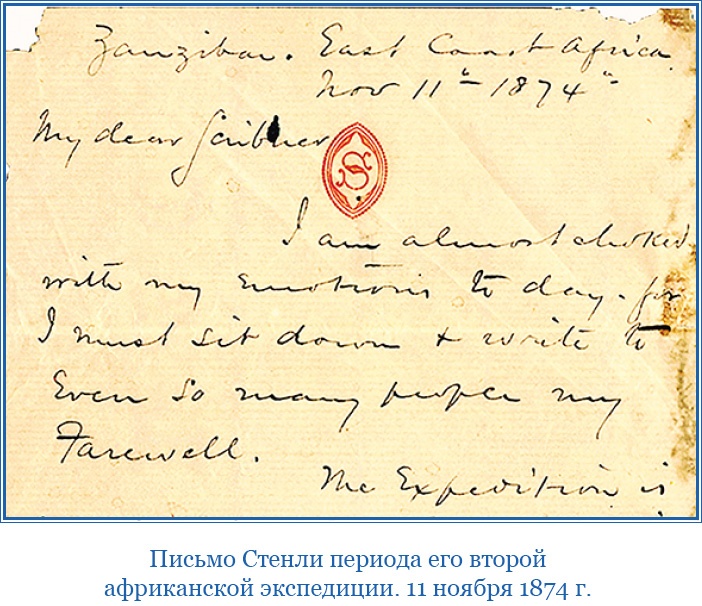 Zanzibar. East Coast Africa
Nov 11th 1874
My dear Scribner
S
I am almost choked
with my emotions to day. for
I must sit down & write to
Even so many people my
Farewell.
The Expedition is
Письмо Стенли периода его второй
африканской экспедиции. 11 ноября 1874 г.